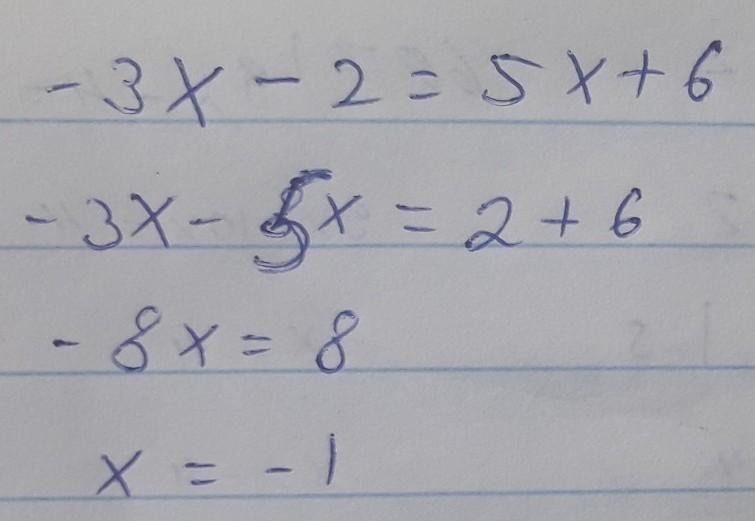 -3x - 2 = 5x + 6
-3x - 5x = 2 + 6
-8x = 8
x = -1